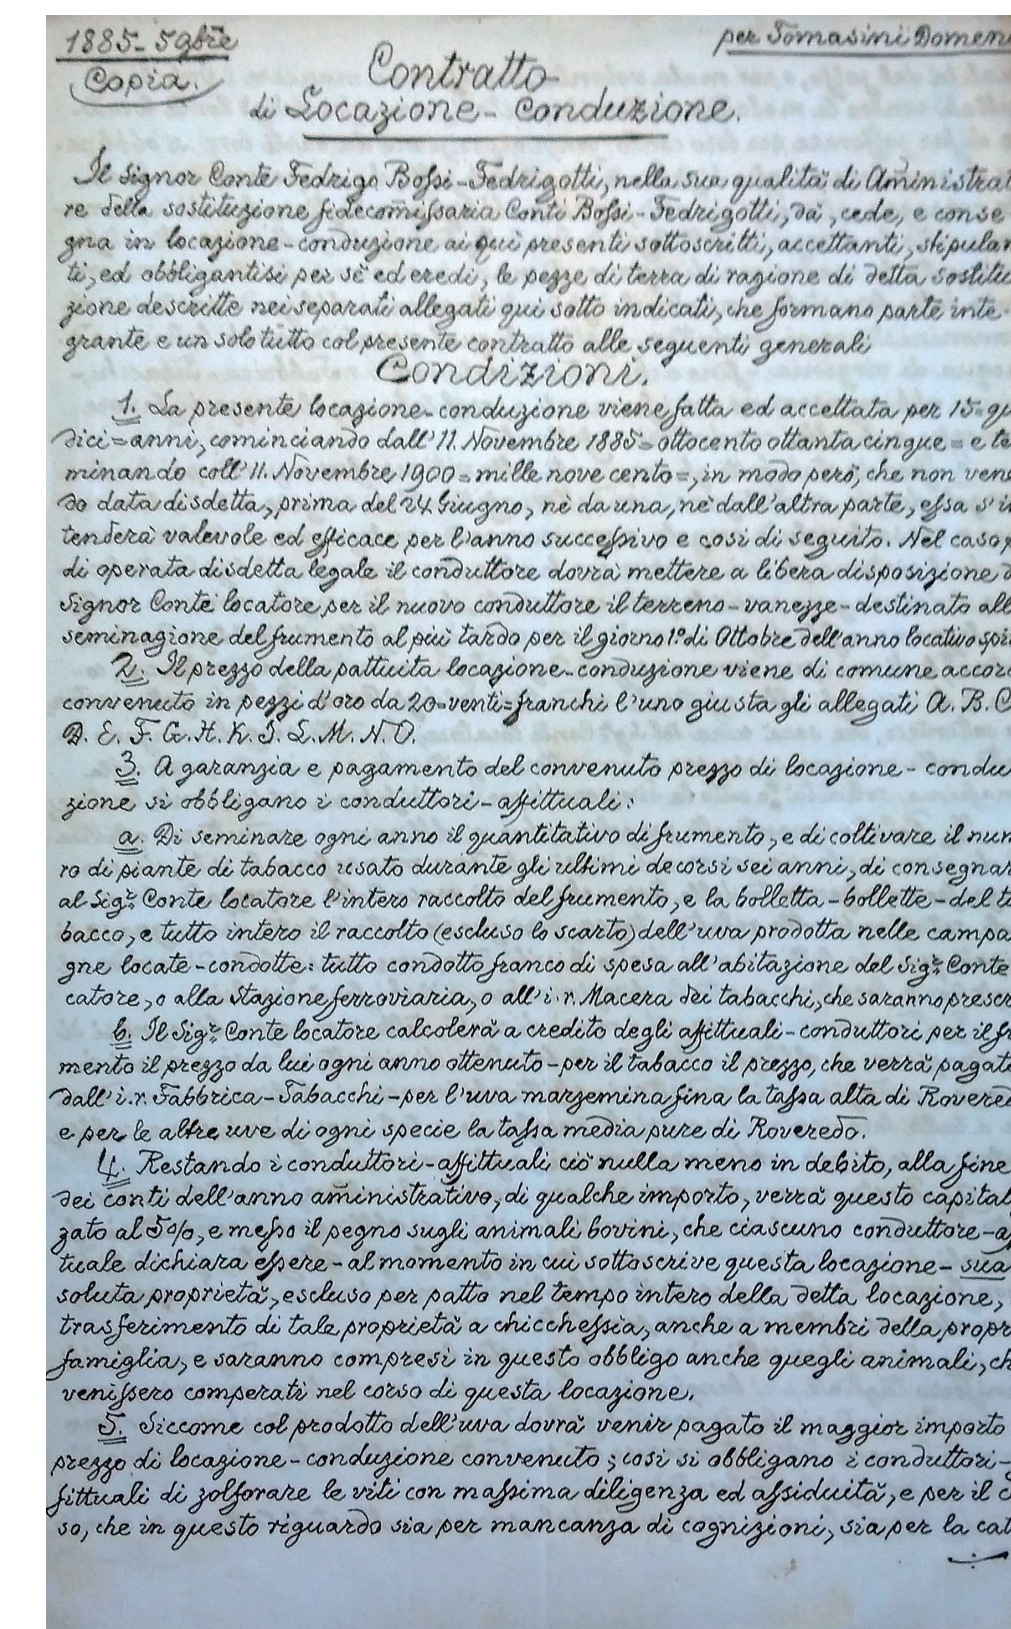 1885 - 5 9bre
per Tomasini Domen
Copia.
Contratto
di Locazione - Conduzione.
Il Signor Conte Fedrigo Bossi-Fedrigotti, nella sua qualità di Aministrat
re della sostituzione fidecomissaria Conti Bossi-Fedrigotti, dà, cede, e conse-
gna in locazione-conduzione ai quì presenti sottoscritti, accettanti, stipulan
ti, ed obbligantisi per sè ed eredi, le pezze di terra di ragione di detta sostitu
zione descritte nei separati allegati qui sotto indicati, che formano parte inte-
grante e un solo tutto col presente contratto alle seguenti generali
Condizioni.
1. La presente locazione-conduzione viene fatta ed accettata per 15=qu
dici=anni, cominciando dall'11. Novembre 1885=ottocento ottanta cinque= e te
minando coll'11. Novembre 1900=mille nove cento=, in modo però, che non vene
do data disdetta, prima del 24 Giugno, nè da una, nè dall'altra parte, essa s'in
tenderà valevole ed efficace per l'anno successivo e così di seguito. Nel caso
di operata disdetta legale il conduttore dovrà mettere a libera disposizione d
Signor Conte locatore per il nuovo conduttore il terreno-vanezze-destinato all
seminagione del frumento al più tardo per il giorno 1º di Ottobre dell'anno locativo spi
2. Il prezzo della pattuita locazione-conduzione viene di comune accor
convenuto in pezzi d'oro da 20=venti=franchi l'uno giusta gli allegati A. B. C
D. E. F. G. H. K. I. L. M. N. O.
3. A garanzia e pagamento del convenuto prezzo di locazione-condu
zione si obbligano i conduttori-affittuali:
a. Di seminare ogni anno il quantitativo di frumento, e di coltivare il num
ro di piante di tabacco usato durante gli ultimi decorsi sei anni, di consegnar
al Sigr. Conte locatore l'intero raccolto del frumento, e la bolletta-bollette-del t
bacco, e tutto intero il raccolto (escluso lo scarto) dell'uva prodotta nelle campa
gne locate-condotte: tutto condotto franco di spesa all'abitazione del Sigr. Conte
catore, o alla Stazione ferroviaria, o all'i.r. Macera dei tabacchi, che saranno prescr
b. Il Sigr. Conte locatore calcolerà a credito degli affittuali-conduttori per il fr
mento il prezzo da lui ogni anno ottenuto-per il tabacco il prezzo, che verrà pagat
dall'i.r. Fabbrica-Tabacchi-per l'uva marzemina fina la tassa alta di Rovered
e per le altre uve di ogni specie la tassa media pure di Roveredo.
4. Restando i conduttori-affittuali ciò nulla meno in debito, alla fine
dei conti dell'anno aministrativo, di qualche importo, verrà questo capital
zato al 5%, e messo il pegno sugli animali bovini, che ciascuno conduttore-af
tuale dichiara essere-al momento in cui sottoscrive questa locazione-sua
soluta proprietà, escluso per patto nel tempo intero della detta locazione,
trasferimento di tale proprietà a chicchessia, anche a membri della propr
famiglia, e saranno compresi in questo obbligo anche quegli animali, ch
venissero comperati nel corso di questa locazione.
5. Siccome col prodotto dell'uva dovrà venir pagato il maggior importo
prezzo di locazione-conduzione convenuto; così si obbligano i conduttori-
fittuali di zolforare le viti con massima diligenza ed assiduità, e per il c
so, che in questo riguardo sia per mancanza di cognizioni, sia per la cat